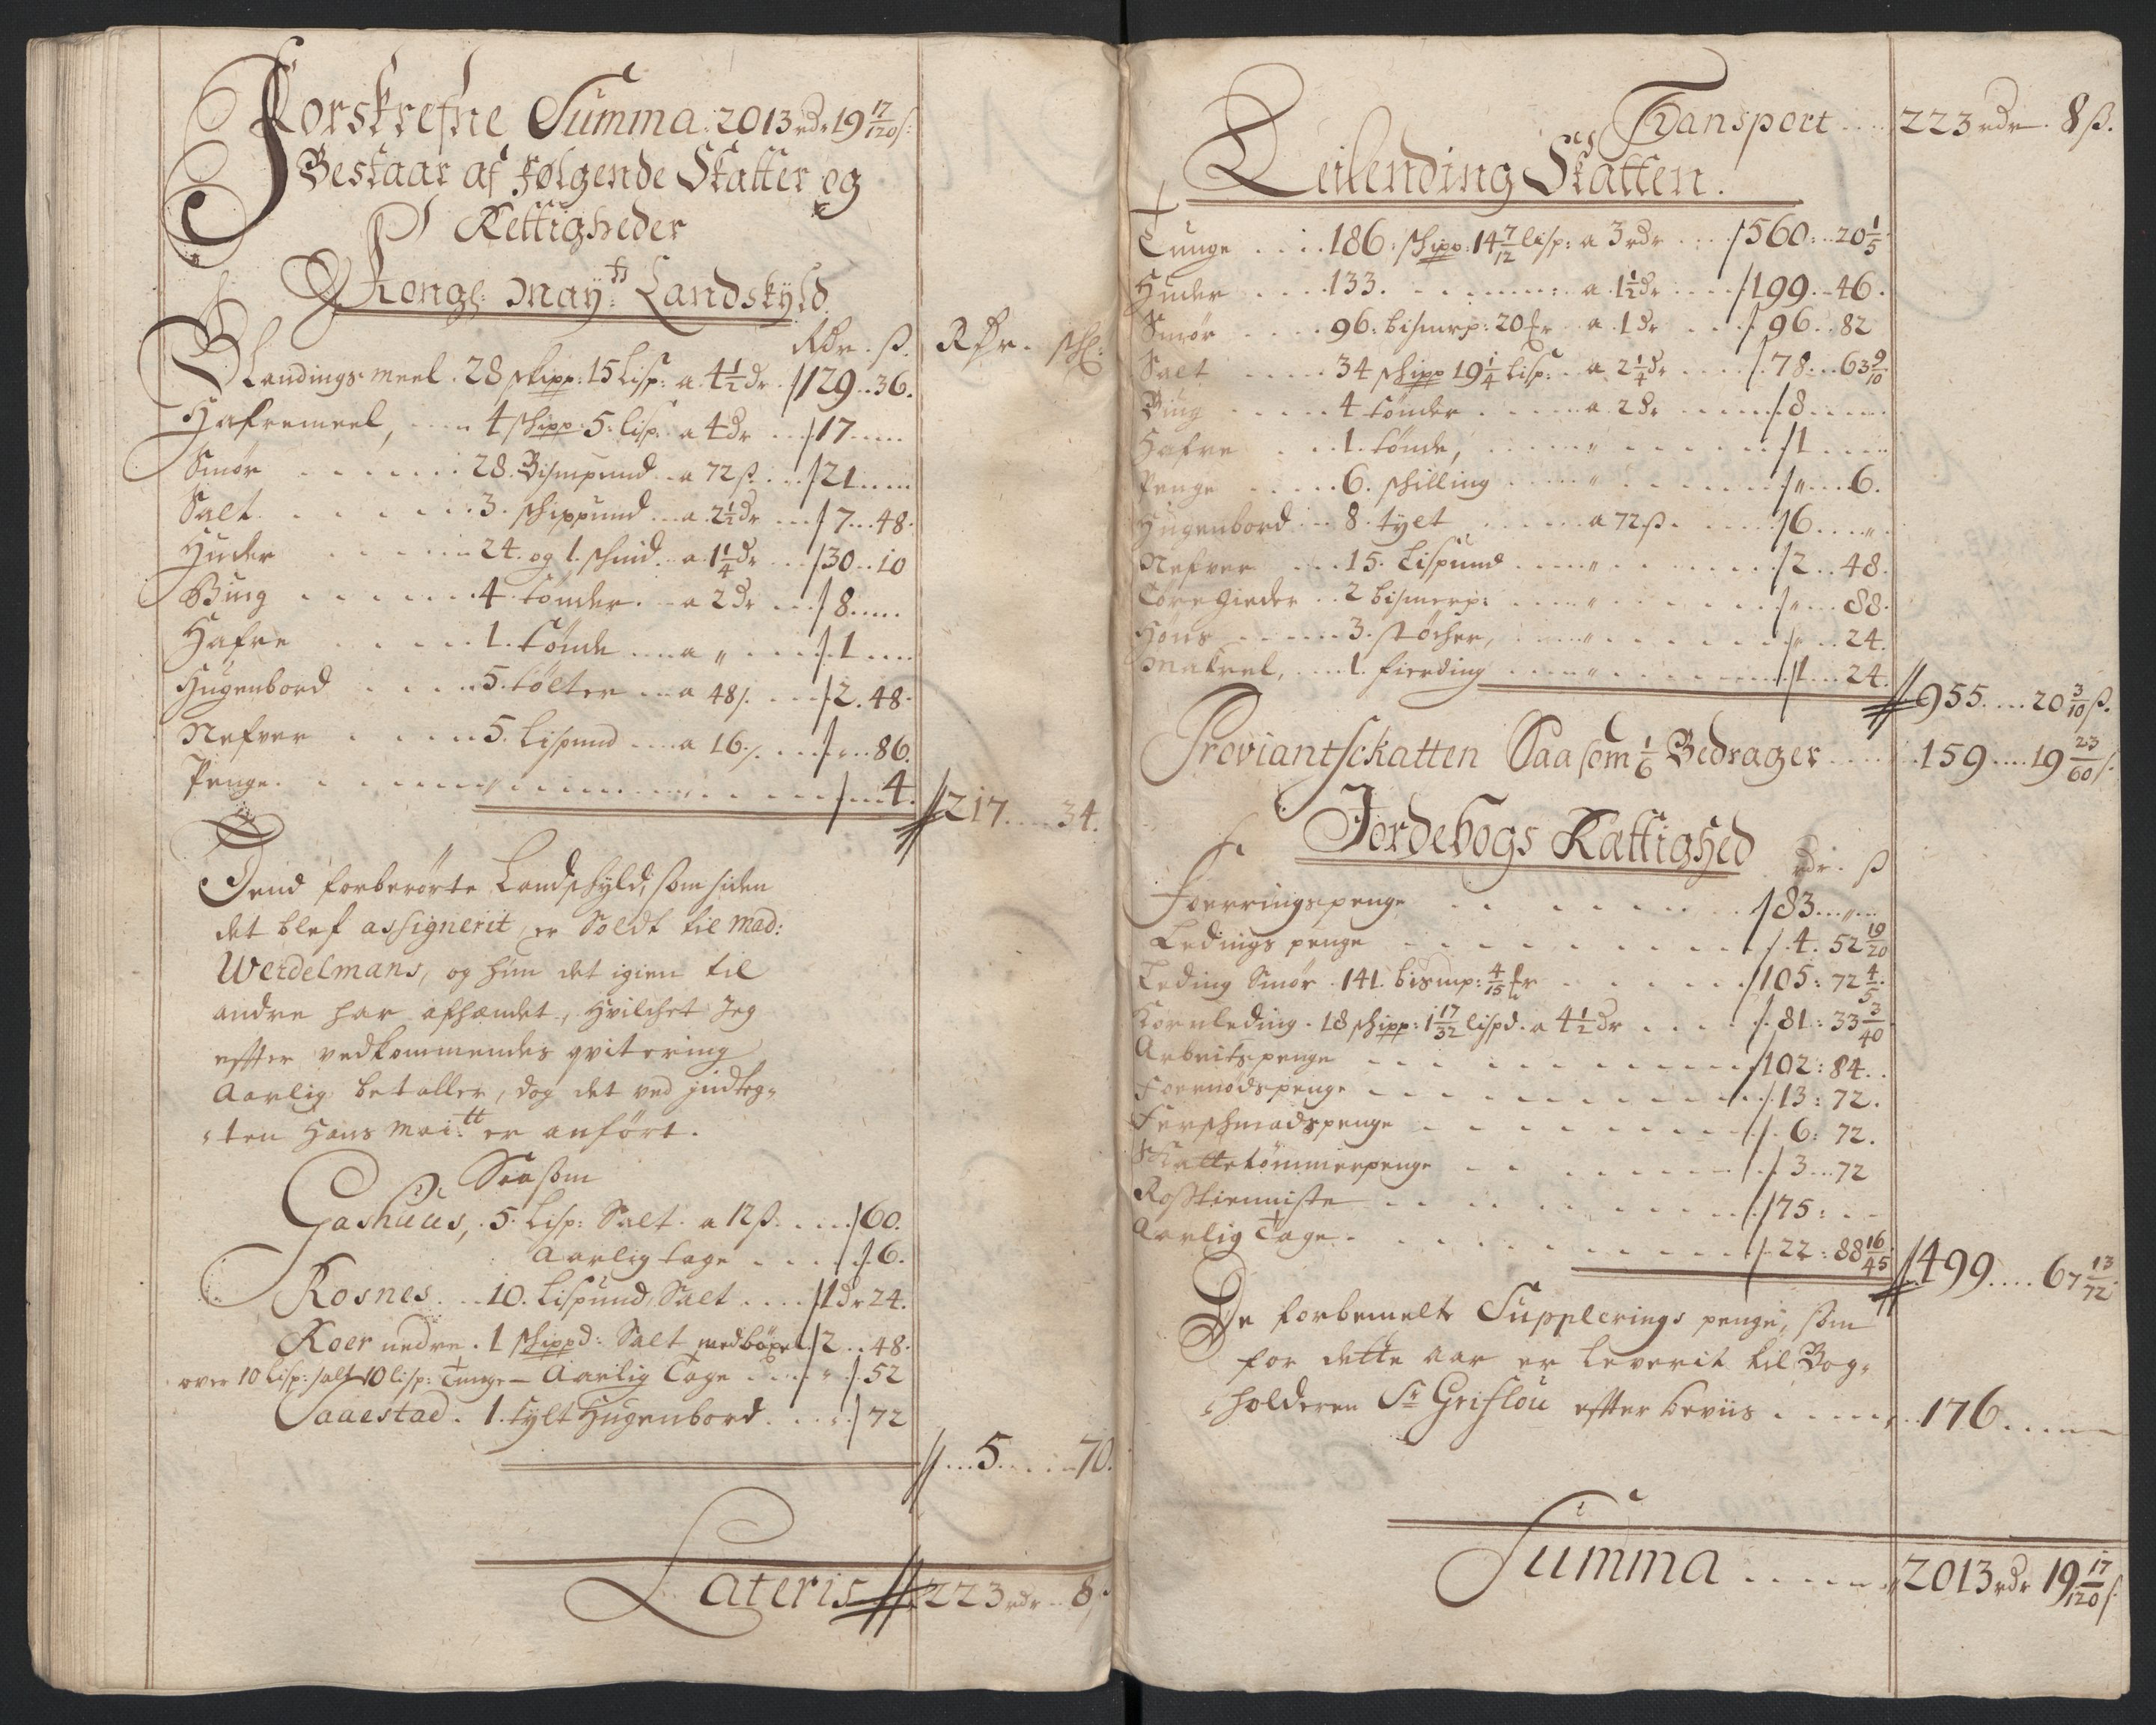 Forskrefne Summa: 2013 rdr 19 17/120 s:
Bestaar af følgende Skatter og
Rettigheder
Kongl: May:tt Landskyld.
Rdr. ß. Rdr. schl:
Blandings meel. 28 skipp: 15 Lisp: a 4½ dr. 129..36.
Hafremeel, 4 schipp: 5: lisp: a 4 dr 17
Smør 28. Bismpund a 72 ß. 21
Salt 3. schippund a 2½ dr 7...48.
Huder 24. og 1. schind. a 1¼ dr 30..10
Biug 4 tønder. a 2 dr 8
Hafre 1. tønde a „ 1
Hugenbord 5. tølter a 48 s. 2. 48.
Nefver 5. Lispund a 16 s. „ 86.
Penge. „ 4. 217 34.
Dend forberørte Landschyld, som siden
det blef assignerit, er Soldt til Mad:
Werdelmans, og hun det igien til
andre har afhændet, hvilchet Jeg
effter vedkommendes qvitering
Aarlig betaller, dog det ved jndteg=
=ten Hans Mai:tt er anført.
Saasom
Gashuus, 5. Lisp: Salt a 12 ß. 60.
Aarlig tage 6.
Rosnes 10. Lispund Salt 1 dr 24.
Roer nedre. 1 schippd: Salt med böxel 2..48.
over 10 Lisp: salt 10 lisp: Tunge — Aarlig Tage „ 52
Saaestad. 1. tylt Hugenbord. „ 72
5 70.
Lateris 223 rdr 8 s.
Transport 223 rdr. 8 ß.
Leilending Skatten.
Tunge 186: schipp: 14 7/12 lisp: a 3 rdr 560:..20 1/5
Huder 133. a 1½ dr 199..46.
Smør 96: bismerp: 20 fr a 1 dr 96..82
Salt 34 schipp 19¼ lisp: a 2¼ dr 78...63 9/10
Biug 4 tönder a 2 dr 8
Hafre 1. tönde, „ 1
Penge 6. schilling „ „ 6.
Hugenbord 8. tylt a 72 ß. 6 „
Nefver 15. Lispund „ 2..48.
Tore Gieder 2 bismerp: „ „ 88.
Høns 3. støcher, „ „ 24.
Makrel, 1. fierding „ 1 24.
955 20 3/10 ß.
Proviantsckatten Saasom 1/6 Bedrager 159 19 23/60 s.
Jordebogs Rattighed
rdr. ß
Foerringspenge 83 „
Ledings penge 4. 52 19/20
Leding Smør 141. bismp: 4/15 fr 105: 72 4/5.
Kornleding. 18 schipp: 1 17/32 lispd. a 4½ dr 81: 33 3/40
Arbeitspenge 102: 84.
Foernødspenge 13: 72.
Ferschmadspenge 6: 72.
Skattetömmerpenge 3 72
Rosstienniste 75:
Aarlig Tage 22: 88 16/45
499 67 13/72.
De forbemelte Supplerings penge, som
for dette aar er leverit til Bog=
=holderen Sr Griflou effter beviis 176
Summa 2013 rdr 19 17/120 s